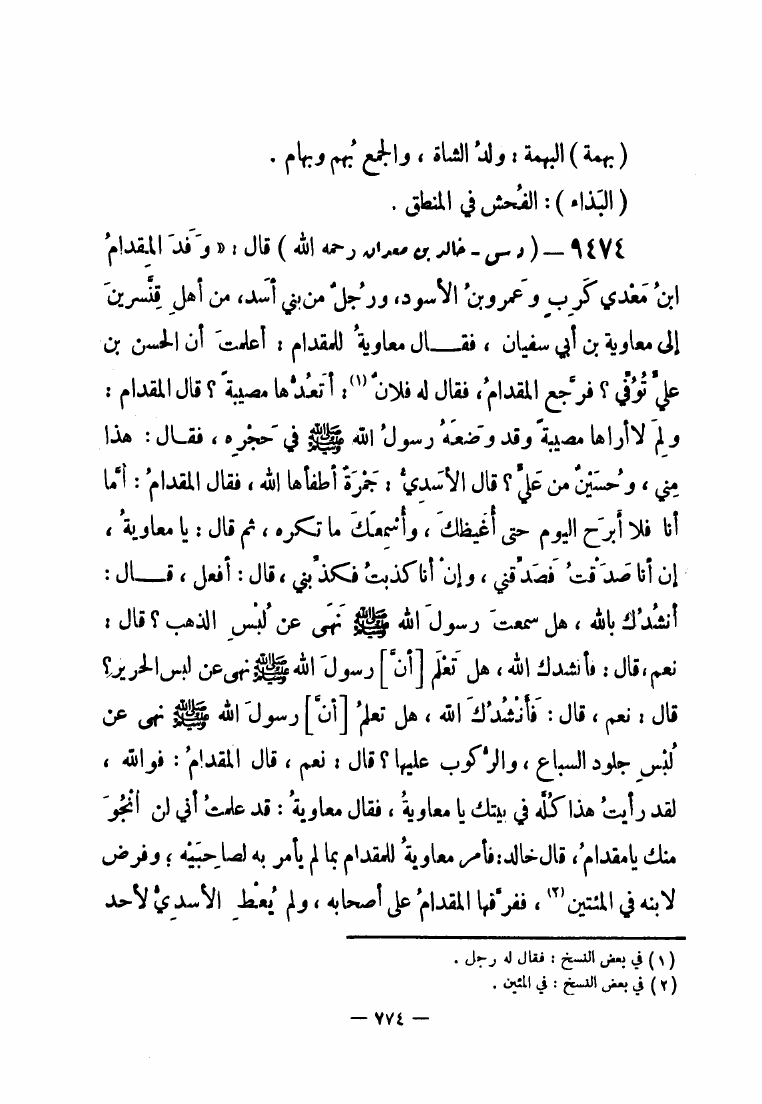 ( بهمة ) البهمة : ولدُ الشاة ، والجمع بُهم وبهام .
( البَذاء ) : الفُحش في المنطق .
٩٤٧٤ — ( د س - خالد بن معدان رحمه الله ) قال : « وَفَدَ المِقدامُ
ابنُ مَعْدي كَرِب وعَمرو بنُ الأسود، ورُجلٌ من بني أَسَد، من أهلِ قِنَّسرينَ
إلى معاوية بن أبي سفيان ، فقــال معاويةُ للمقدام : أعلمتَ أن الحسن بن
عليٍّ تُوُفِّي ؟ فرجَّع المقدامُ، فقال له فلانٌ (١) : أتعُدُّها مصيبةً ؟ قال المقدام :
ولِمَ لا أراها مصيبةً وقد وضعَهُ رسولُ الله ﷺ في حَجْرِه ، فقــال : هذا
مِني ، وحُسَيْنٌ من عَليٍّ ؟ قال الأسَديُّ : جَمْرَةٌ أطفأها الله ، فقال المقدامُ : أمَّا
أنا فلا أَبرَح اليوم حتى أُغيظكَ ، وأُسْمِعَكَ ما تكره ، ثم قال : يا معاويةُ ،
إن أنا صَدَقْتُ فَصَدِّقني ، وإنْ أنا كذبتُ فكذِّبني ، قال : أفعل ، قــال :
أنشُدُكَ بالله ، هل سمعتَ رسولَ الله ﷺ نَهَى عن لُبْسِ الذهب ؟ قال :
نعم، قال : فأنشدك الله ، هل تَعْلَم [أنَّ] رسولَ الله ﷺ نهى عن لبس الحرير؟
قال : نعم ، قال : فَأَنْشُدُكَ الله ، هل تعلمُ [أنَّ] رسولَ الله ﷺ نهى عن
لُبْسِ جلود السباع ، والرُّكوب عليها ؟ قال : نعم ، قال المقدامُ : فوالله ،
لقد رأيتُ هذا كُلَّه في بيتك يا معاويةُ ، فقال معاويةُ : قد علمتُ أني لن أنْجُوَ
منك يا مقدامُ، قال خالد: فأمر معاويةُ للمقدام بما لم يأمر به لصاحبَيْه ؛ وفرض
لابنه في المئتين (٢) ، ففرَّقها المقدامُ على أصحابه ، ولم يُعْطِ الأسديُّ لأحد
(١) في بعض النسخ : فقال له رجل .
(٢) في بعض النسخ : في المئين .
— ٧٧٤ —